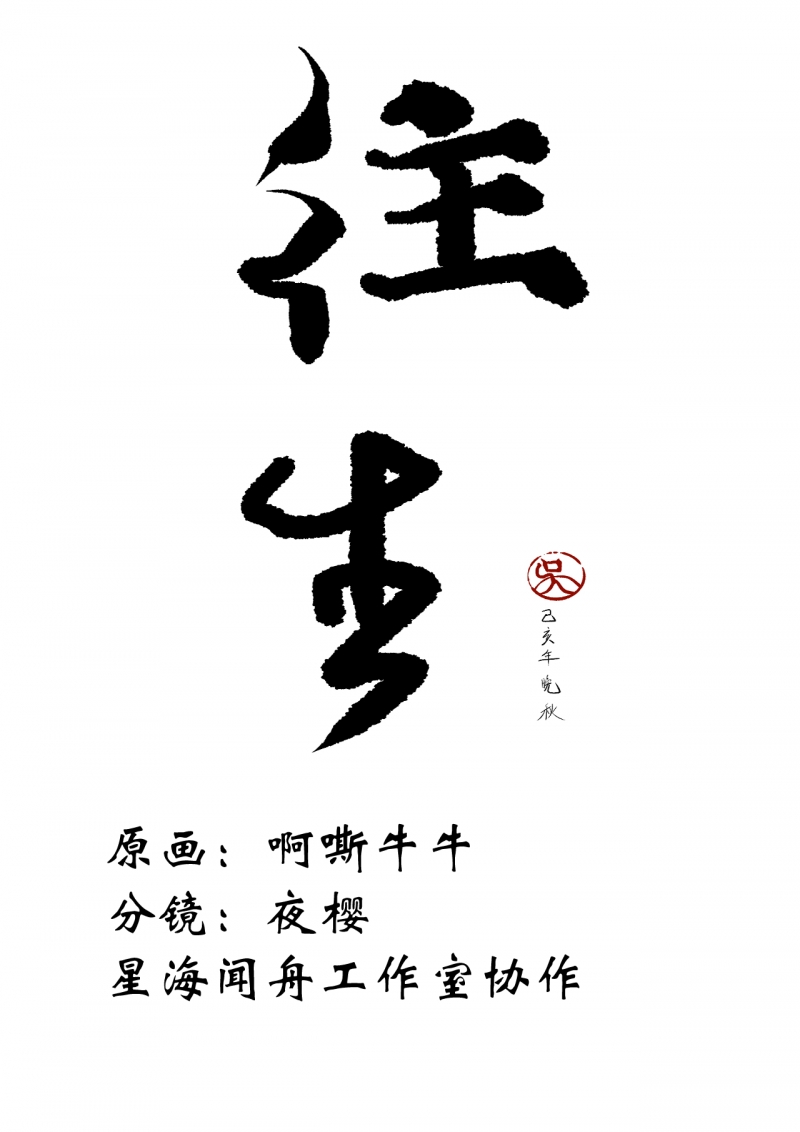 往生
吴
己亥年晚秋
原画：啊嘶牛牛
分镜：夜樱
星海闻舟工作室协作